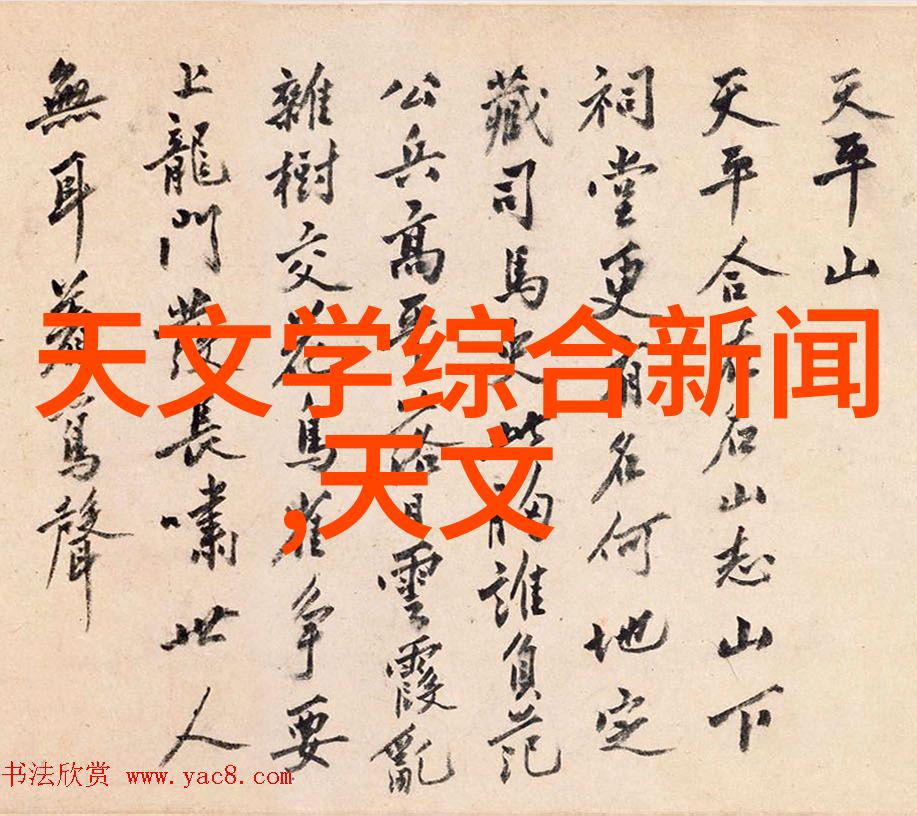 天文学综合新闻
,天文
天平山
天平合名山志山下
祠堂更有名何地定
藏司馬史此胸誰負范
公兵高平落日雲霞亂
雜樹交花鳥雀争要
上龍門發長嘯世人
無耳著聲
书法欣赏 www.yac8.com